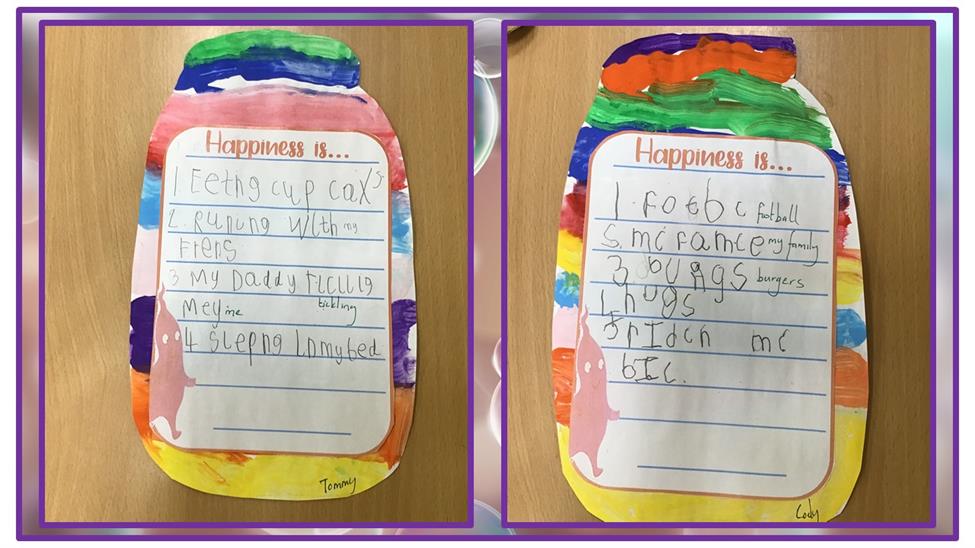 Happiness is...
1 Eethg cup caxs
2. Runung with my
Frens
3 My Daddy ticllig
tickling
Mey me
4 slepng inmybed
Tommy
Happiness is...
1. Footb c football
S. mc famce my family
3 bungs burgers
4 hugs
5 rIdcn mc
bIc.
Cody